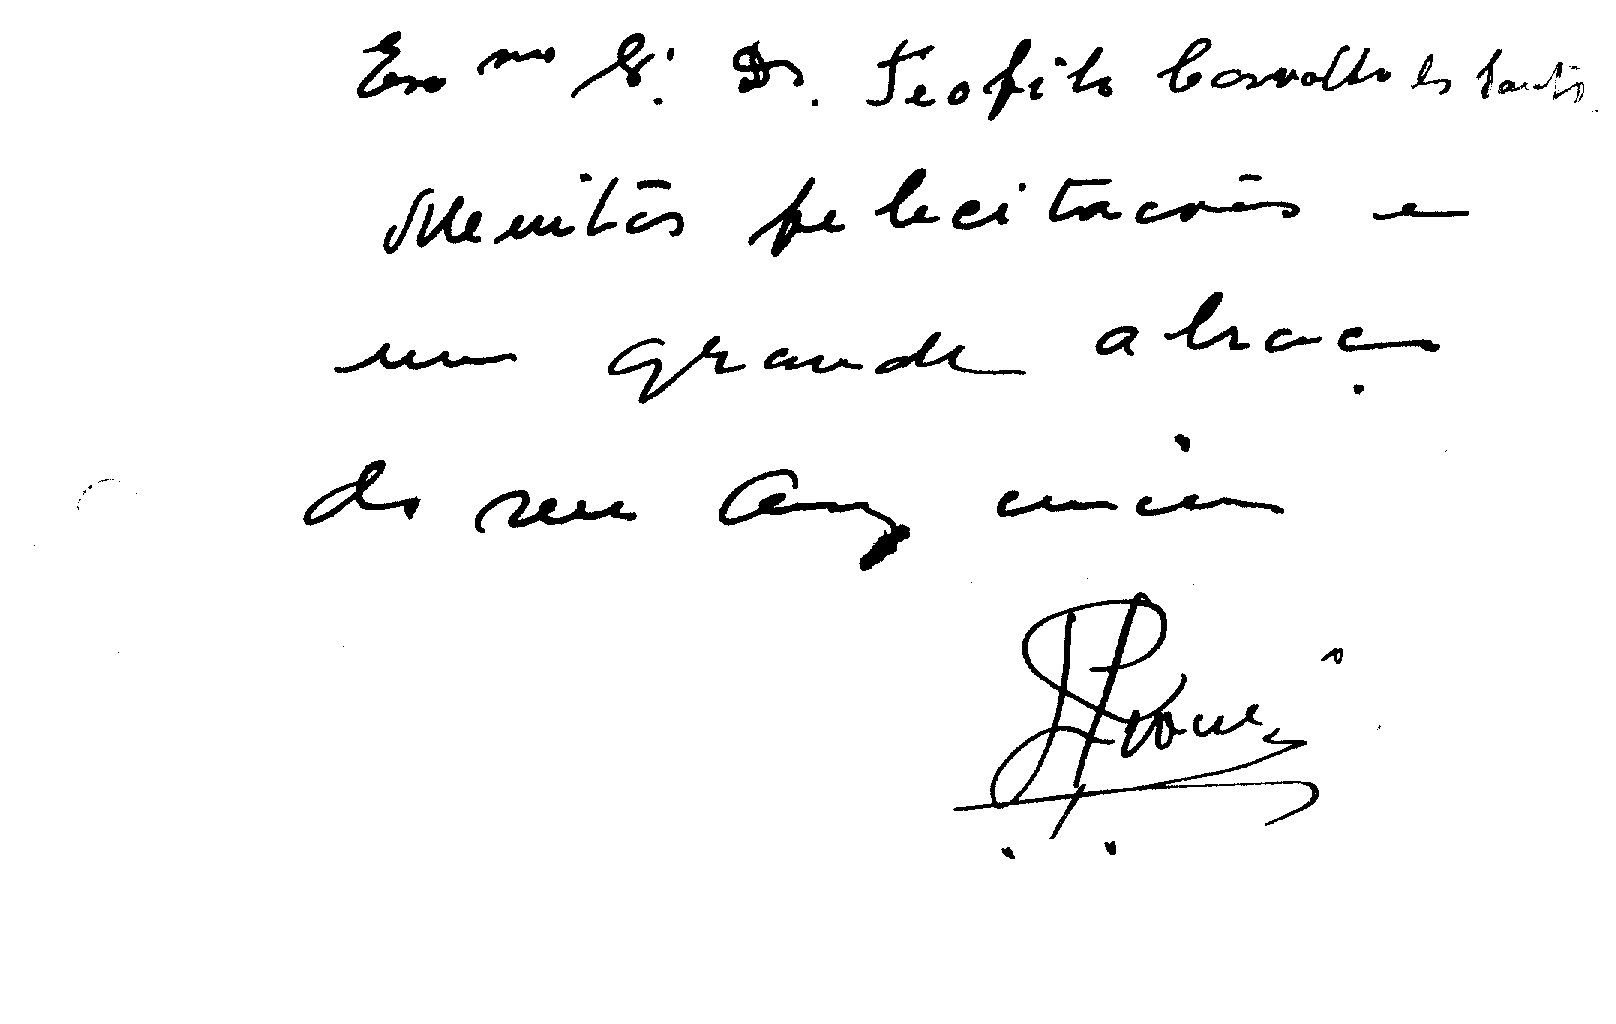 Exmo Sr. Dr. Teofilo Carvalho dos Santos
Muitas felicitações e
um grande abraço
do seu amigo